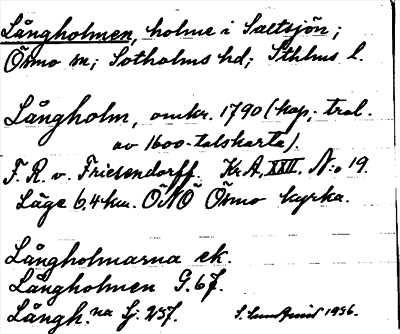 Långholmen, holme i Saltsjön;
Ösmo sn; Sotholms hd; Sthlms l.
Långholm, omkr. 1790 (kop; trol.
av 1600-talskarta).
F. R. v. Friesendorff. KrA, XXII. N:o 19.
Läge 6,4 km. ÖNÖ Ösmo kyrka.
Långholmarna ek.
Långholmen G. 67.
Långh.na Sj. 257. S. Lundquist 1936.